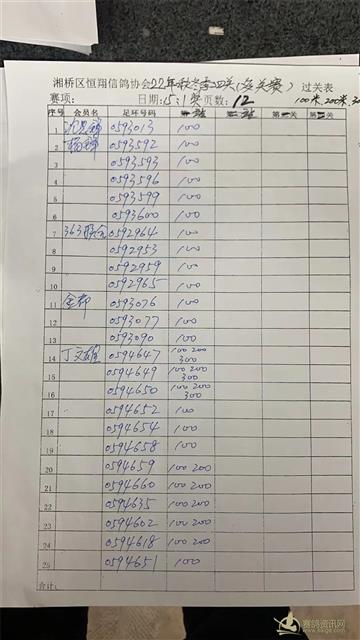 湘桥区恒翔信鸽协会22年秋冬季四关(多关赛) 过关表
赛项: 日期: 页数: 12 100米,200米,30
序号 会员名 足环号码
1 0593013 100
2 杨锦 0593592 100
3 0593593 100
4 0593596 100
5 0593599 100
6 0593600 100
7 363联合 0592964 100
8 0592953 100
9 0592959 100
10 0592965 100
11 0593076 100
12 0593077 100
13 0593090 100
14 丁文雄 0594647 100 200 300
15 0594649 100 200 300
16 0594650 100 200 300
17 0594652 100
18 0594654 100
19 0594658 100
20 0594659 100 200
21 0594660 100 200
22 0594635 100 200
23 0594602 100 200
24 0594618 100 200
25 0594651 100
合计:
赛鸽资讯网